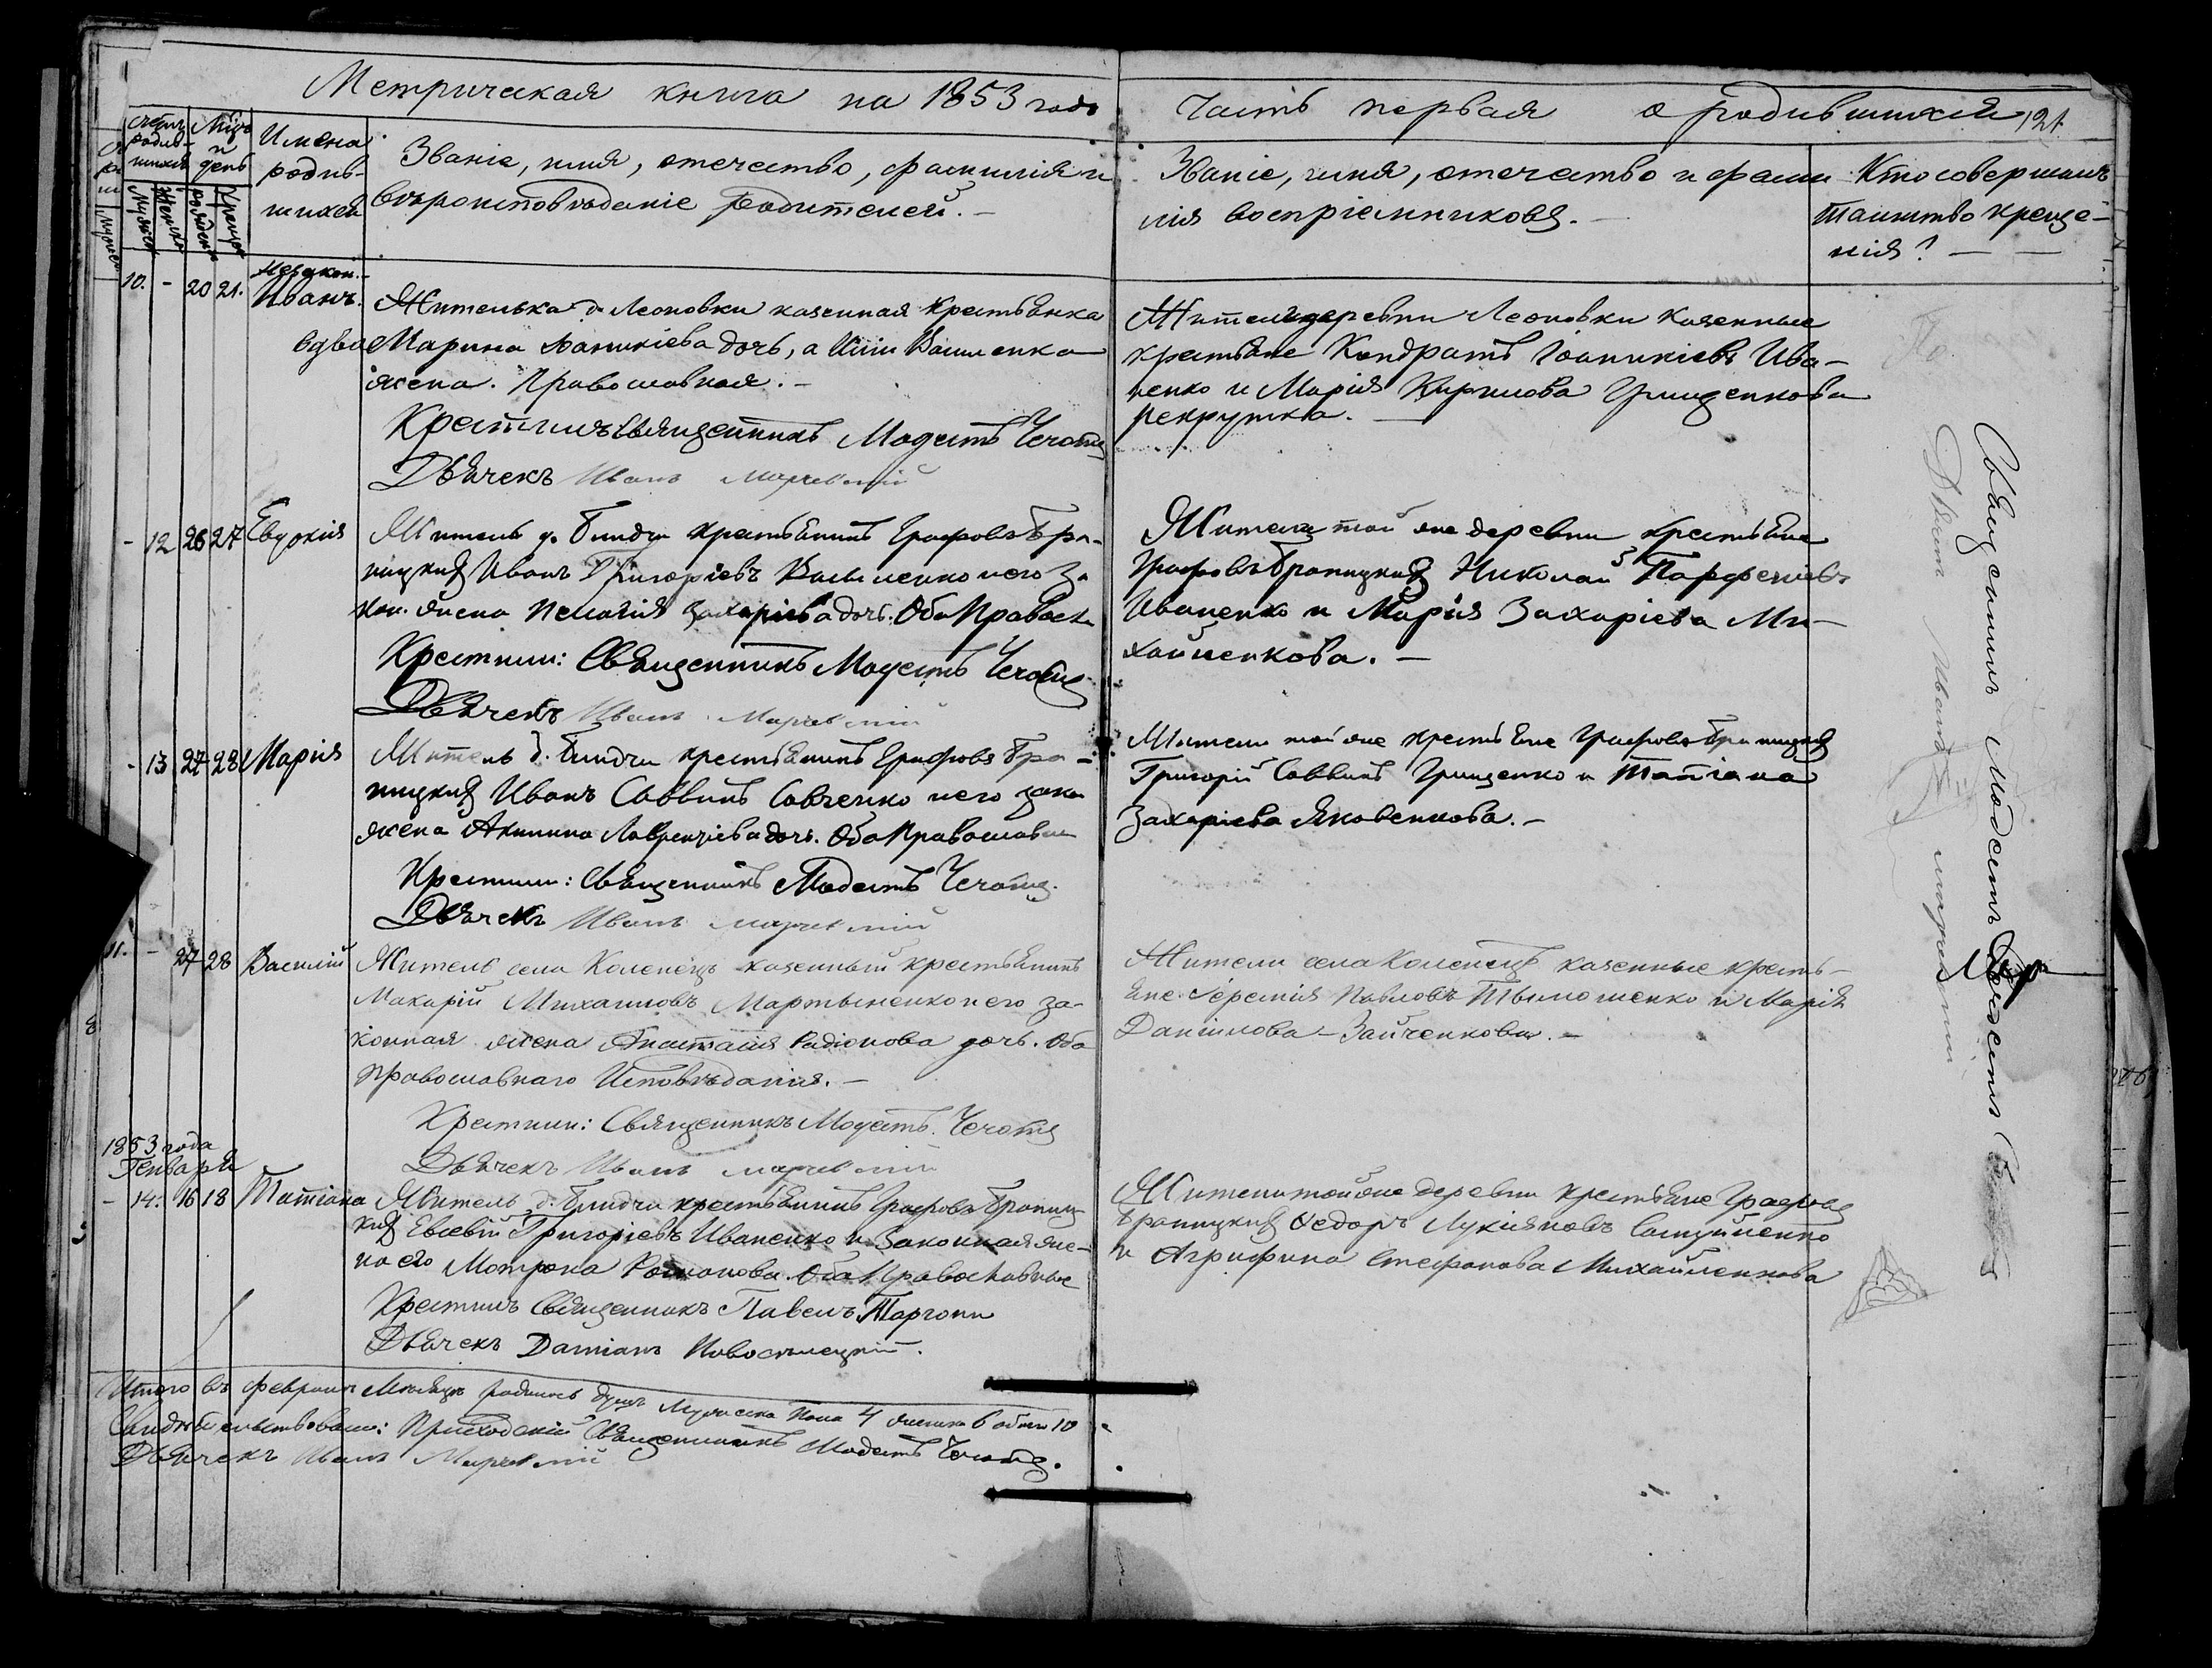 Метрическая книга на 1853 годъ
Часть первая о родившихся 121.
Счетъ родив-шихся
Мцъ и день
Имена родив-шихся
Званіе, имя, отчество, фамилія и
вѣроисповѣданіе родителей. —
Званіе, имя, отечество и фами
лія воспріемниковъ. —
Кто совершалъ
таинство креще-
нія? — —
Мужеск
Женска
рожден
Крещен
10. - 20 21. незакон. Иванъ.
Жителька д. Леоновки казенная крестьянка
вдва Марина Іоаникіева дочь, а
жена. Православная. —
Крестилъ священникъ Модестъ
Дьячекъ Иванъ
Жители деревни Леоновки казенные
крестьяне Кондратъ Іоаникіевъ Ива-
ненко и Марія Кирилова Грищенкова
рекрутка. —
- 12 26 27 Евдокія
Житель д. крестьянинъ Графовъ Бра-
ницкихъ Иванъ Григоріевъ Василенко и его за
кон. жена Пелагія Захаріева дочь. Оба Правосл
Крестили: Священникъ Модестъ
Дьячекъ Иванъ
Жители той же деревни крестьяне
Графовъ Браницкихъ Николай Парфеніевъ
Иваненко и Марія Захаріева Ми-
хайленкова. —
- 13 27 28 Марія
Житель д. крестьянинъ Графовъ Бра-
ницкихъ Иванъ Саввинъ Савченко и его зако
жена Акилина Лаврентіева дочь. Оба Православн
Крестили: Священникъ Модестъ
Дьячекъ Иванъ
Жители той же крестьяне Графовъ Браницкихъ
Григорій Саввинъ Грищенко и Татіана
Захаріева Яковенкова. —
11. - 27 28 Василій
Житель села Коленецъ казенный крестьянинъ
Макарій Михаиловъ Мартыненко и его за-
конная жена Анастасія Радіонова дочь. Оба
православнаго Исповѣданія. —
Крестили: Священникъ Модестъ
Дьячекъ Иванъ
Жители села Коленецъ казенные кресть-
яне Іеремія Павловъ Тымошенко и Марія
Даниилова Зайченкова. —
1853 года
Генваря
- 14. 16 18 Татіана
Житель д. крестьянинъ Графовъ Браниц
кихъ Евсевій Григоріевъ Иваненко и Законная же-
на его Мотрона Романова. Оба Православные
Крестилъ Священникъ Павелъ
Дьячекъ Даміанъ Новоселецкій.
Жители той же деревни крестьяне Графовъ
Браницкихъ Федоръ Лукіяновъ
и Агрифина Стефанова Михайленкова
Итого въ февралѣ Мѣсяцѣ родилось душъ Мужеска Пола 4 женска 6 обоего 10
Свидѣтельствовали: Приходскій Священникъ Модестъ
Дьячекъ Иванъ
Священникъ Модестъ
Дьячекъ Иванъ